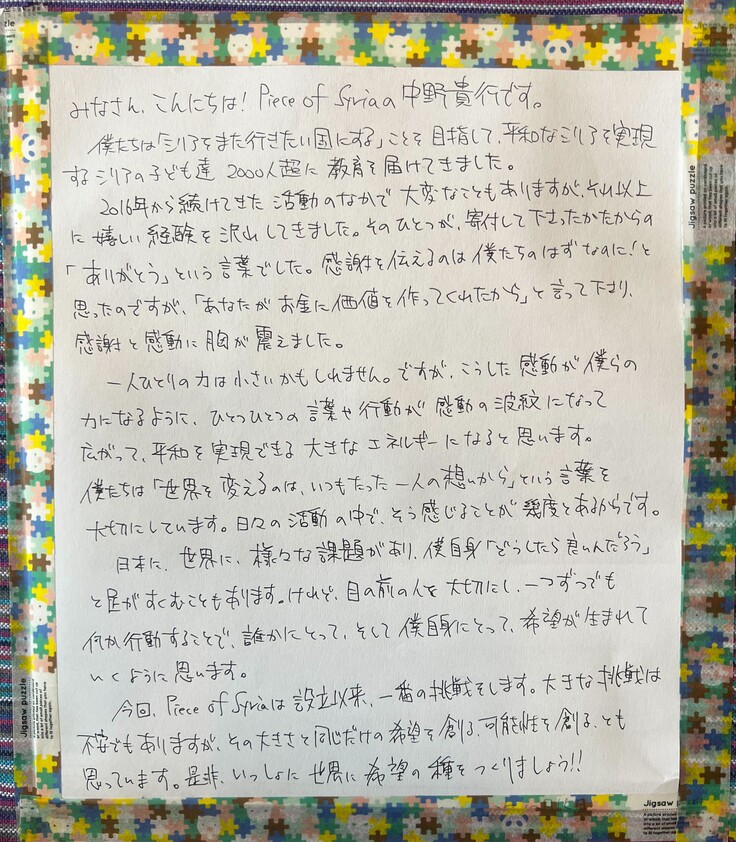 みなさん、こんにちは! Piece of Syriaの中野貴行です。
僕たちは「シリアをまた行きたい国にする」ことを目指して、平和なシリアを実現
するシリアの子ども達 2000人超に教育を届けてきました。
2016年から続けてきた活動のなかで大変なこともありますが、それ以上
に嬉しい経験を沢山してきました。そのひとつが、寄付して下さったかたからの
「ありがとう」という言葉でした。感謝を伝えるのは僕たちのはずなのに!と
思ったのですが、「あなたがお金に価値を作ってくれたから」と言って下さり、
感謝と感動に胸が震えました。
一人ひとりの力は小さいかもしれません。ですが、こうした感動が僕らの
力になるように、ひとつひとつの言葉や行動が感動の波紋になって
広がって、平和を実現できる大きなエネルギーになると思います。
僕たちは「世界を変えるのは、いつもたった一人の想いから」という言葉を
大切にしています。日々の活動の中で、そう感じることが幾度とあるからです。
日本に、世界に、様々な課題があり、僕自身「どうしたら良いんだろう」
と足がすくむこともあります。けれど、目の前の人を大切にし、一つずつでも
何か行動することで、誰かにとって、そして僕自身にとって、希望が生まれて
いくように思います。
今回、Piece of Syriaは設立以来、一番の挑戦をします。大きな挑戦は
不安でもありますが、その大きさと同じだけの希望を創る、可能性を創る、とも
思っています。是非、いっしょに世界に希望の種をつくりましょう!!
Jigsaw puzzle
Jigsaw puzzle
Jigsaw p